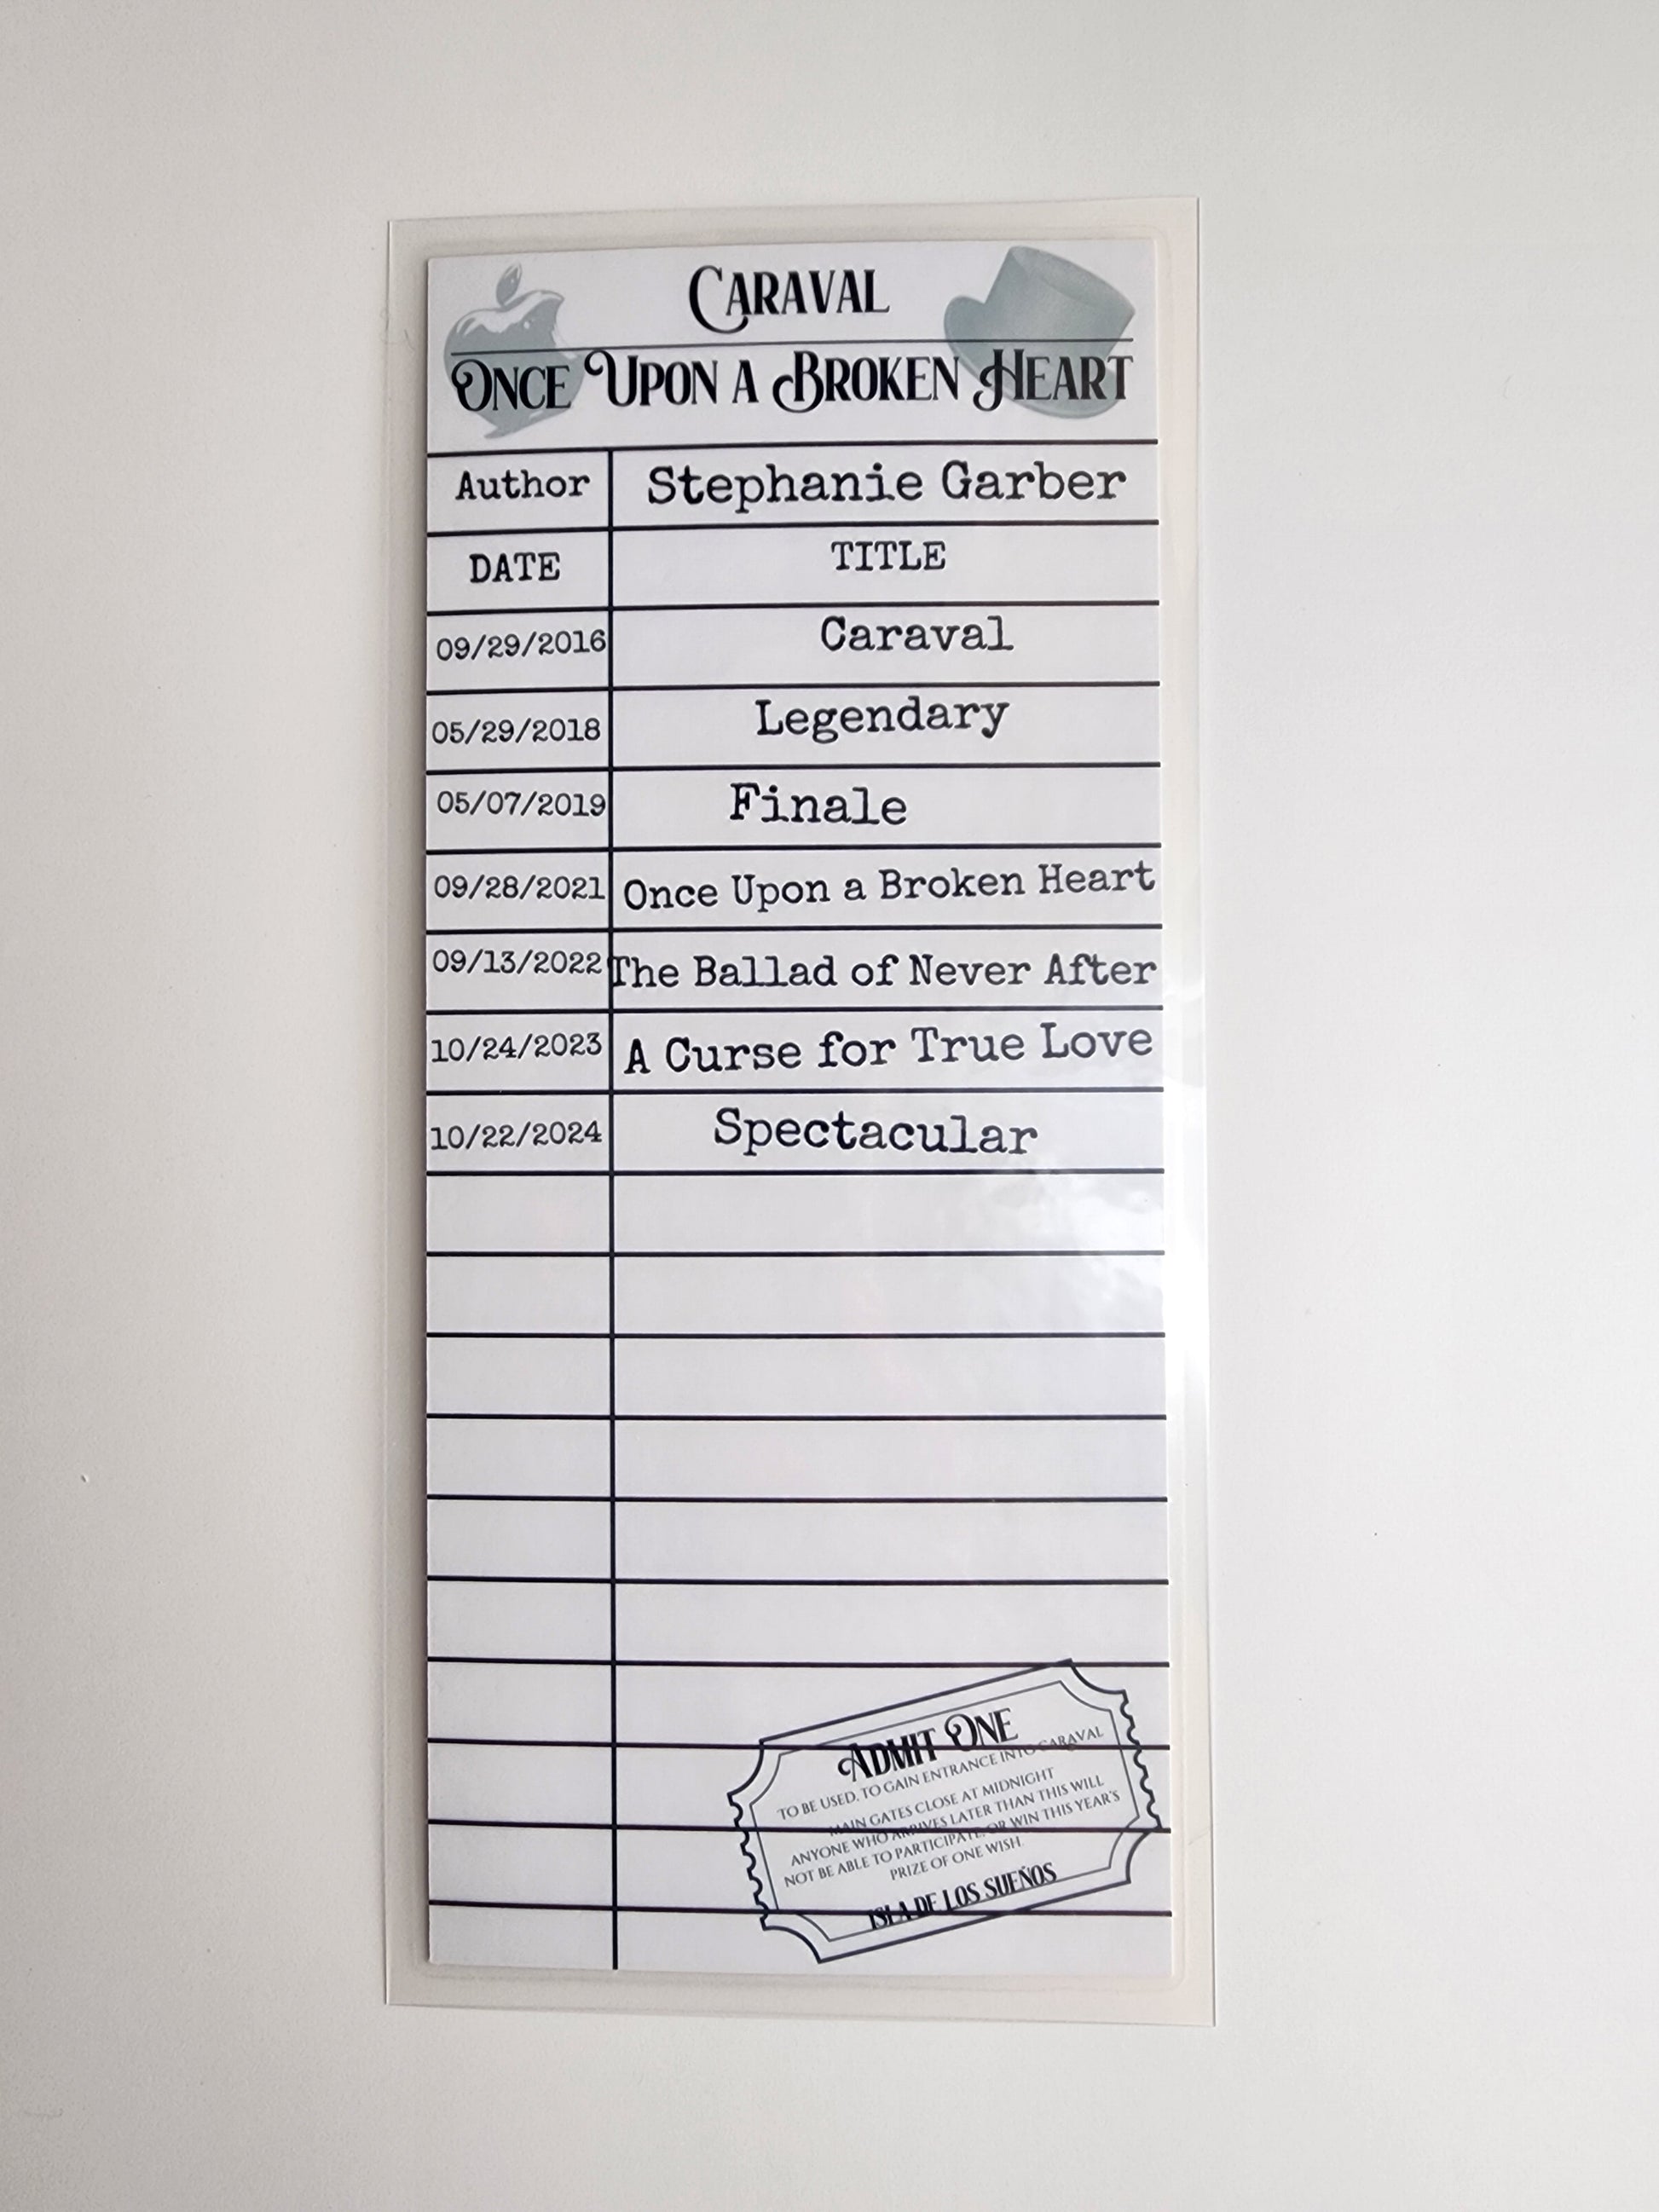 CARAVAL
ONCE UPON A BROKEN HEART
Author Stephanie Garber
DATE TITLE
09/29/2016 Caraval
05/29/2018 Legendary
05/07/2019 Finale
09/28/2021 Once Upon a Broken Heart
09/13/2022 The Ballad of Never After
10/24/2023 A Curse for True Love
10/22/2024 Spectacular
ADMIT ONE
TO BE USED, TO GAIN ENTRANCE INTO CARAVAL
MAIN GATES CLOSE AT MIDNIGHT
ANYONE WHO ARRIVES LATER THAN THIS WILL
NOT BE ABLE TO PARTICIPATE, OR WIN THIS YEAR'S
PRIZE OF ONE WISH.
ISLA DE LOS SUEÑOS